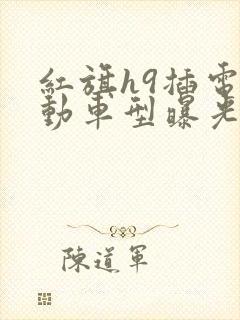 紅旗h9插電
動車型曝光
陳道軍